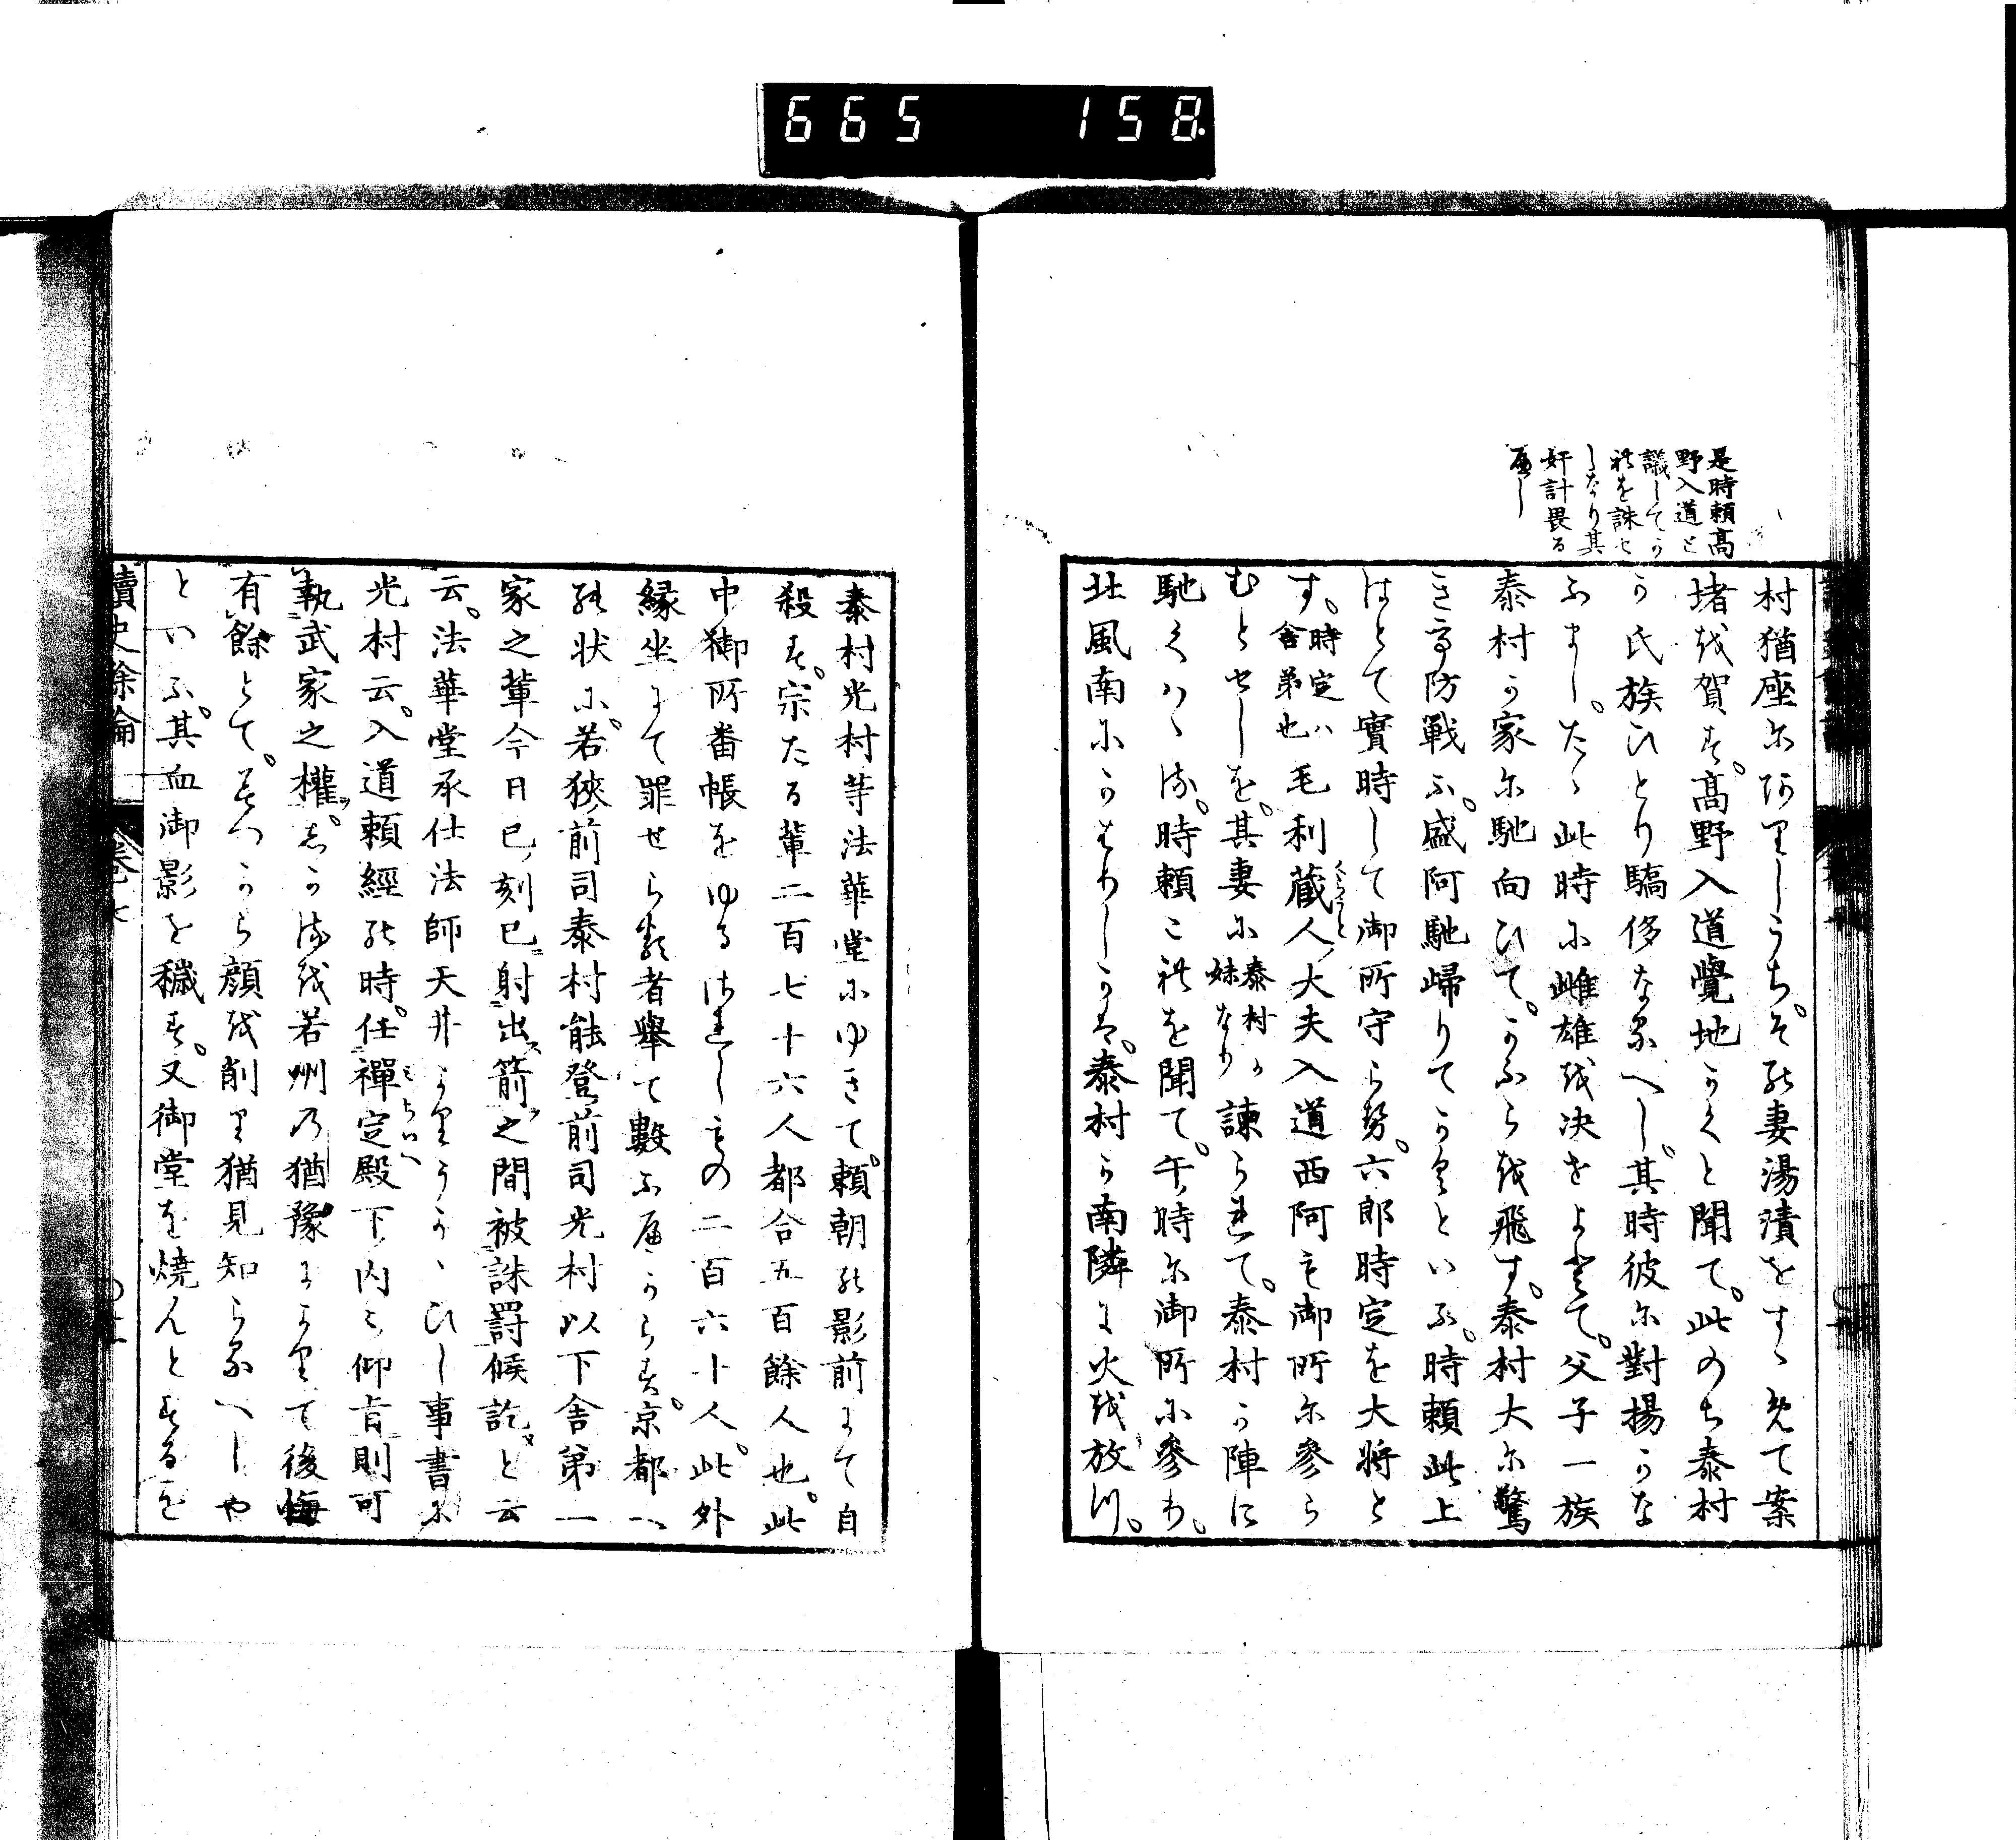 665 158
是時頼高
野入道と
議してか
れを誅せ
しなり其
奸計畏る
へし
村猶座にありしうち。その妻湯漬をすゝめて案
堵を賀す。高野入道覺地かくと聞て。此のち泰村
か氏族ひとり驕侈なるへし。其時彼に對揚かな
ふまし。たゝ此時に雌雄を决せよとて。父子一族
泰村か家に馳向ひて。かふらを飛す。泰村大に驚
きて防戦ふ。盛阿馳歸りてかくといふ。時頼此上
はとて實時して御所守らせ。六郎時定を大將と
す。時定ハ舍弟也毛利蔵人大夫入道西阿も御所に參ら
くらうと
むとせしを。其妻に泰村か妹なり諫られて。泰村か陣に
馳くハゝる。時頼これを聞て。午時に御所に參り。
北風南にかはりしかは。泰村か南隣に火を放つ。
泰村光村等法華堂にゆきて。頼朝の影前にて自
殺す。宗たる輩二百七十六人都合五百餘人也。此
中御所番帳をゆるされしもの二百六十人。此外
縁坐にて罪せらるゝ者舉て數ふへからす。京都へ
の状に。若狹前司泰村能登前司光村以下舍弟一
家之輩今日已刻已射出箭之間被誅罰候訖と云
云。法華堂承仕法師天井よりうかゝひし事書に
光村云。入道頼經の時。任禪定殿下内々仰旨則可
みちいへ
執武家之權。しかるを若州の猶豫によりて後悔
有餘とて。みつから顔を削り猶見知らるへしや
といふ。其血御影を穢す。又御堂を焼んとするを
讀史餘論 卷七